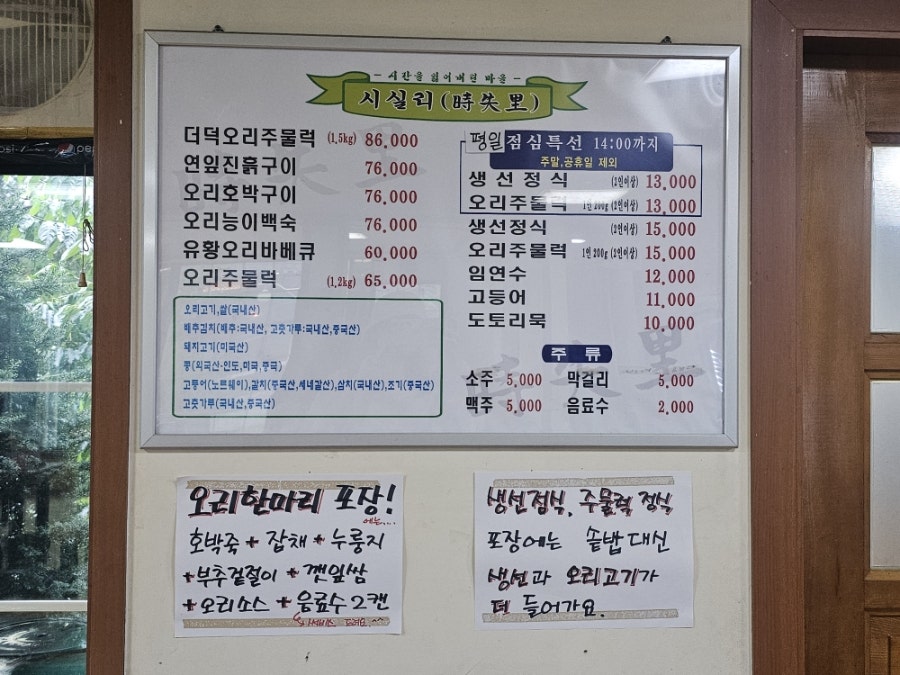 - 시간을 잃어버린 마을 -
시실리(時失里)
더덕오리주물럭 (1.5kg) 86,000
연잎진흙구이 76,000
오리호박구이 76,000
오리능이백숙 76,000
유황오리바베큐 60,000
오리주물럭 (1.2kg) 65,000
오리고기,쌀(국내산)
배추김치(배추:국내산, 고춧가루:국내산,중국산)
돼지고기(미국산)
콩(외국산-인도,미국,중국)
고등어(노르웨이),갈치(중국산,세네갈산),삼치(국내산),조기(중국산)
고춧가루(국내산,중국산)
평일 점심특선 14:00까지
주말,공휴일 제외
생선정식 (2인이상) 13,000
오리주물럭 1인 200g (2인이상) 13,000
생선정식 (2인이상) 15,000
오리주물럭 1인 200g (2인이상) 15,000
임연수 12,000
고등어 11,000
도토리묵 10,000
주류
소주 5,000 막걸리 5,000
맥주 5,000 음료수 2,000
오리한마리 포장!
에는...
호박죽 + 잡채 + 누룽지
+ 부추겉절이 + 깻잎쌈
+ 오리소스 + 음료수 2캔
서비스 드려요 ^^
생선정식, 주물럭 정식
포장에는 솥밥대신
생선과 오리고기가
더 들어가요.